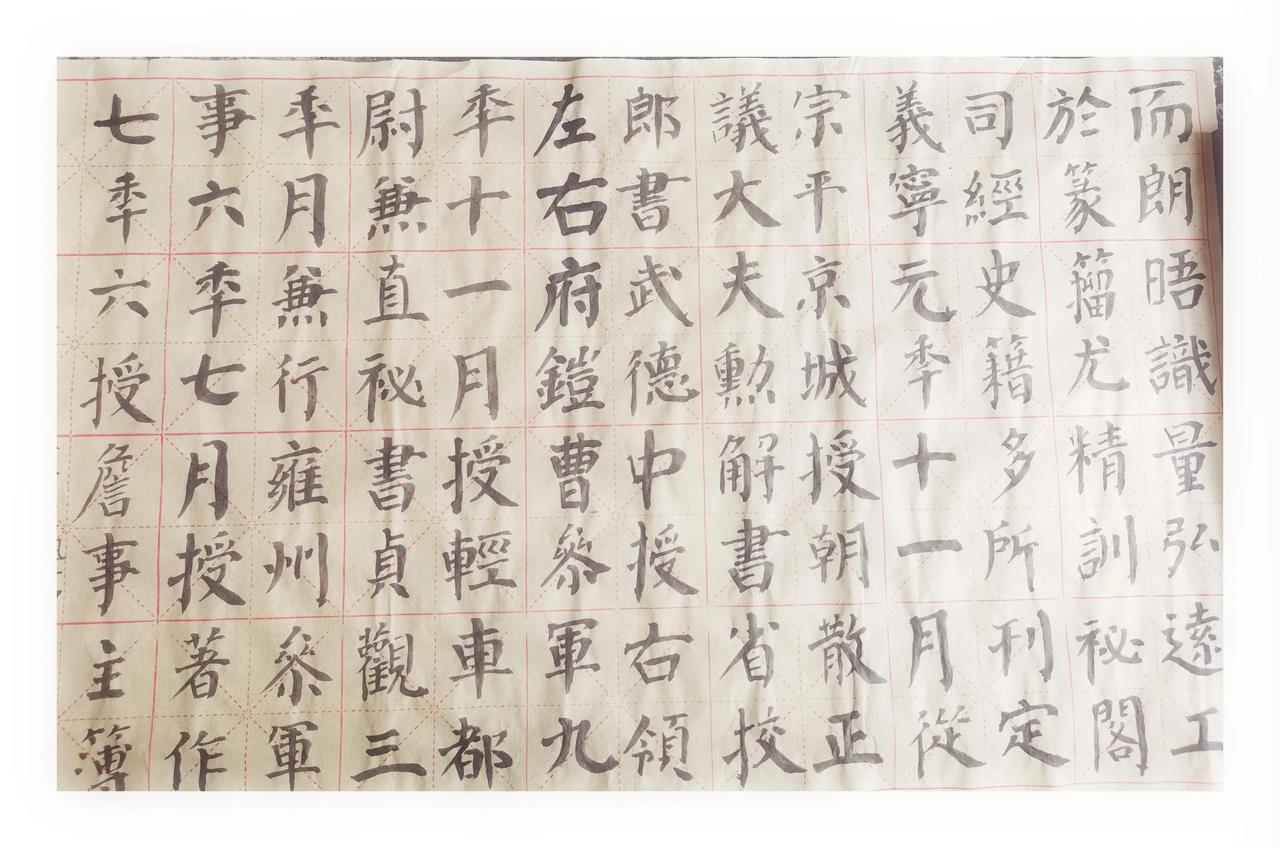 而朗晤識量弘遠工
於篆籀尤精訓祕閣
司經史籍多所刊定
義寧元秊十一月從
宗平京城授朝散正
議大夫勳解書省挍
郎書武德中授右領
左右府鎧曹叅軍九
秊十一月授輕車都
尉兼直祕書貞觀三
秊月兼行雍州叅軍
事六秊七月授著作
七秊六授詹事主簿